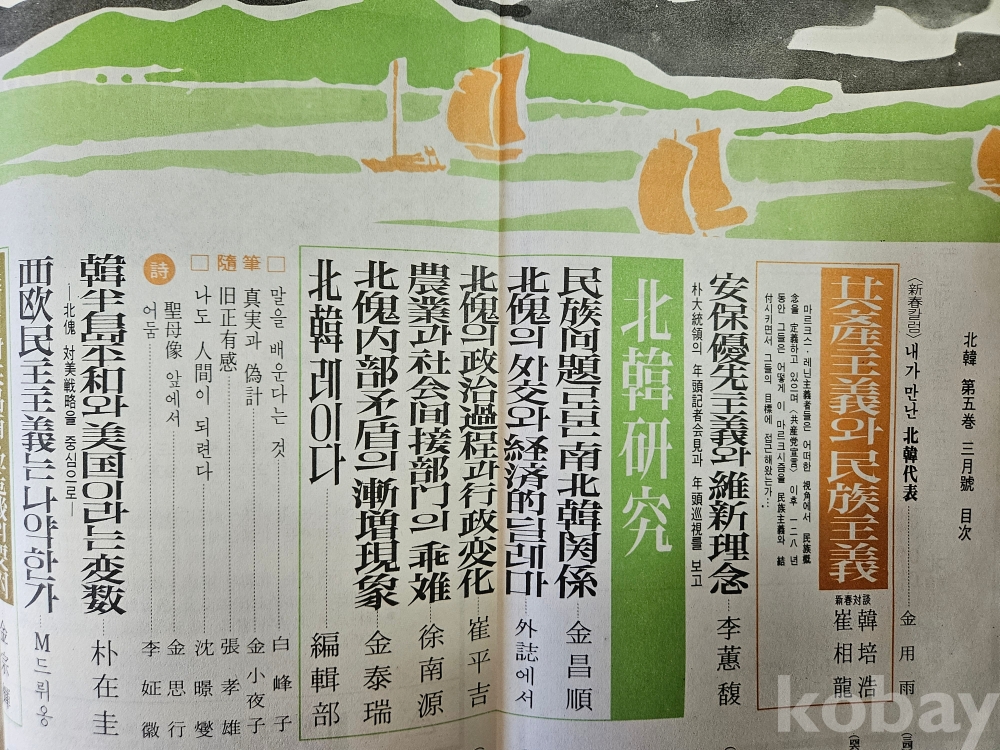 北韓 第五巻 三月號 目次
〈新春칼럼〉내가 만난 北韓代表 金用雨
共產主義와 民族主義
新春対談
韓培浩
崔相龍
마르크스·레닌主義者들은 어떠한 視角에서 民族槪
念을 定義하고 있으며〈共産党宣言〉이후 一二八년
동안 그들은 어떻게 이 마르크시즘을 民族主義와 結
付시키면서 그들의 目標에 접근해왔는가…
安保優先主義와 維新理念 李蕙馥
朴大統領의 年頭記者会見과 年頭巡視를 보고
北韓研究
民族问題로 본 南北韓関係 金昌順
北傀의 外交와 経済的 딜레마 外誌에서
北傀의 政治過程과 行政変化 崔平吉
農業과 社会间接部门의 乖離 徐南源
北傀内部矛盾의 漸增現象 金泰瑞
北韓레이다 編輯部
□ 隨筆 □
말을 배운다는 것 白峰子
真実과 偽計 金小夜子
旧正有感 張孝雄
나도 人間이 되련다 沈暻燮
詩
聖母像 앞에서 金思行
어둠 李姃徽
韓半島平和와 美国이라는 変数 朴在圭
—北傀 対美戦略을 중심으로—
西欧民主主義는 나약한가 M드뤼옹
kobay